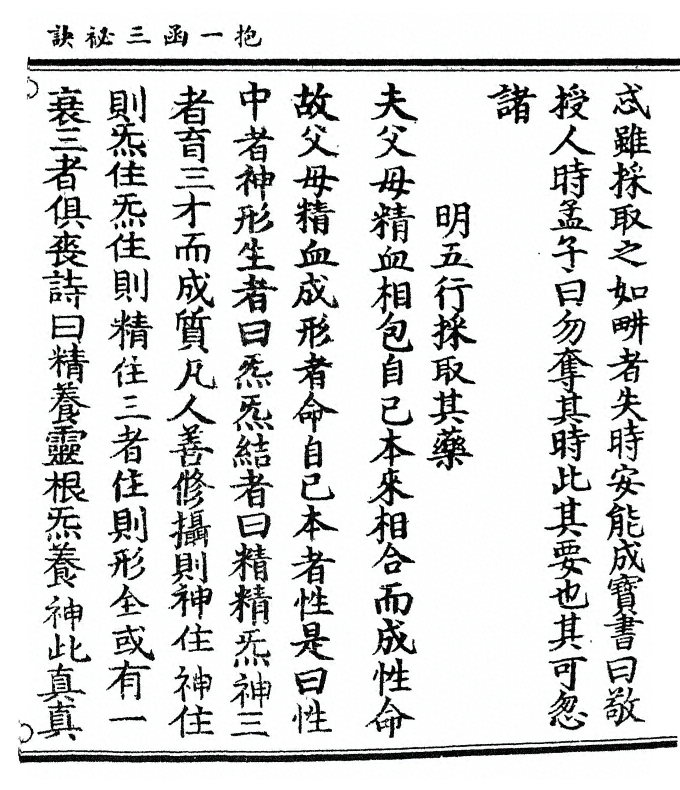 抱一函三祕訣
忒雖採取之如畊者失時安能成寶書曰敬
授人時孟子曰勿奪其時此其要也其可忽
諸
明五行採取其藥
夫父母精血相包自己本來相合而成性命
故父母精血成形者命自己本者性是曰性
中者神形生者曰炁炁結者曰精精炁神三
者育三才而成質凡人善修攝則神住神住
則炁住炁住則精住三者住則形全或有一
衰三者俱喪詩曰精養靈根炁養神此真真